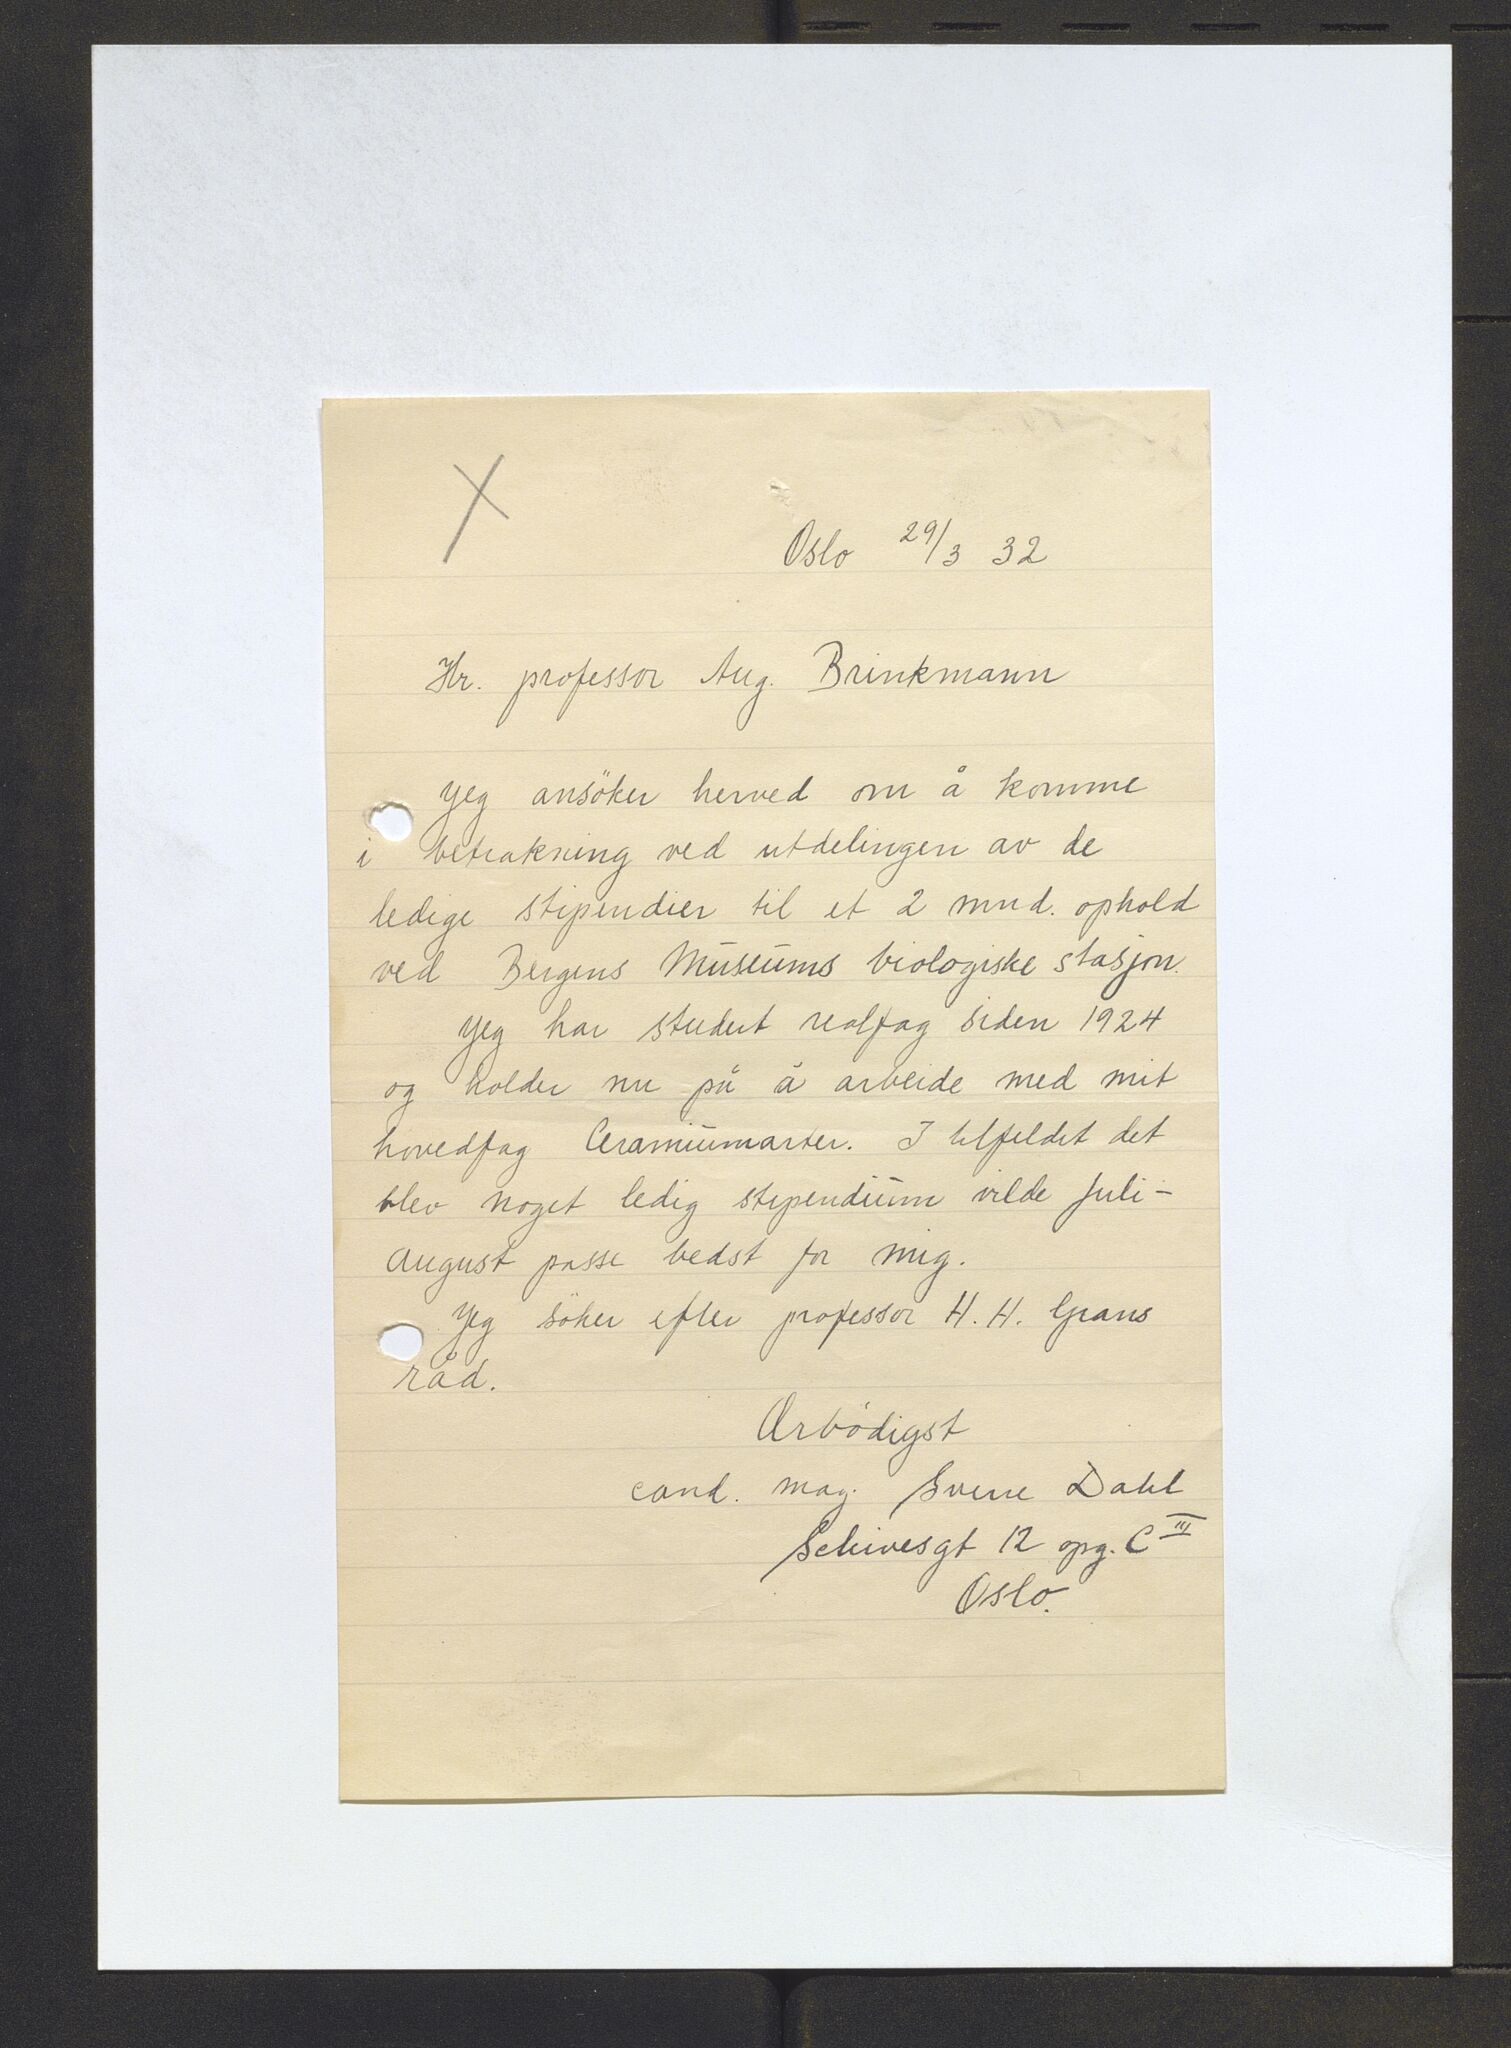 Oslo 29/3 32
Hr. professor Aug. Brinkmann
Jeg ansöker herved om å komme
i betrakning ved utdelingen av de
ledige stipendier til et 2 mnd. ophold
ved Bergens Museums biologiske stasjon.
Jeg har studert realfag siden 1924
og holder nu på å arbeide med mit
hovedfag Ceramiumarter. I tilfeldet det
blev noget ledig stipendium vilde juli-
august passe bedst for mig.
Jeg söker efter professor H. H. Grans
råd.
Ærbödigst
cand. mag. Sverre Dahl
Schivesgt 12 opg. C III
Oslo.